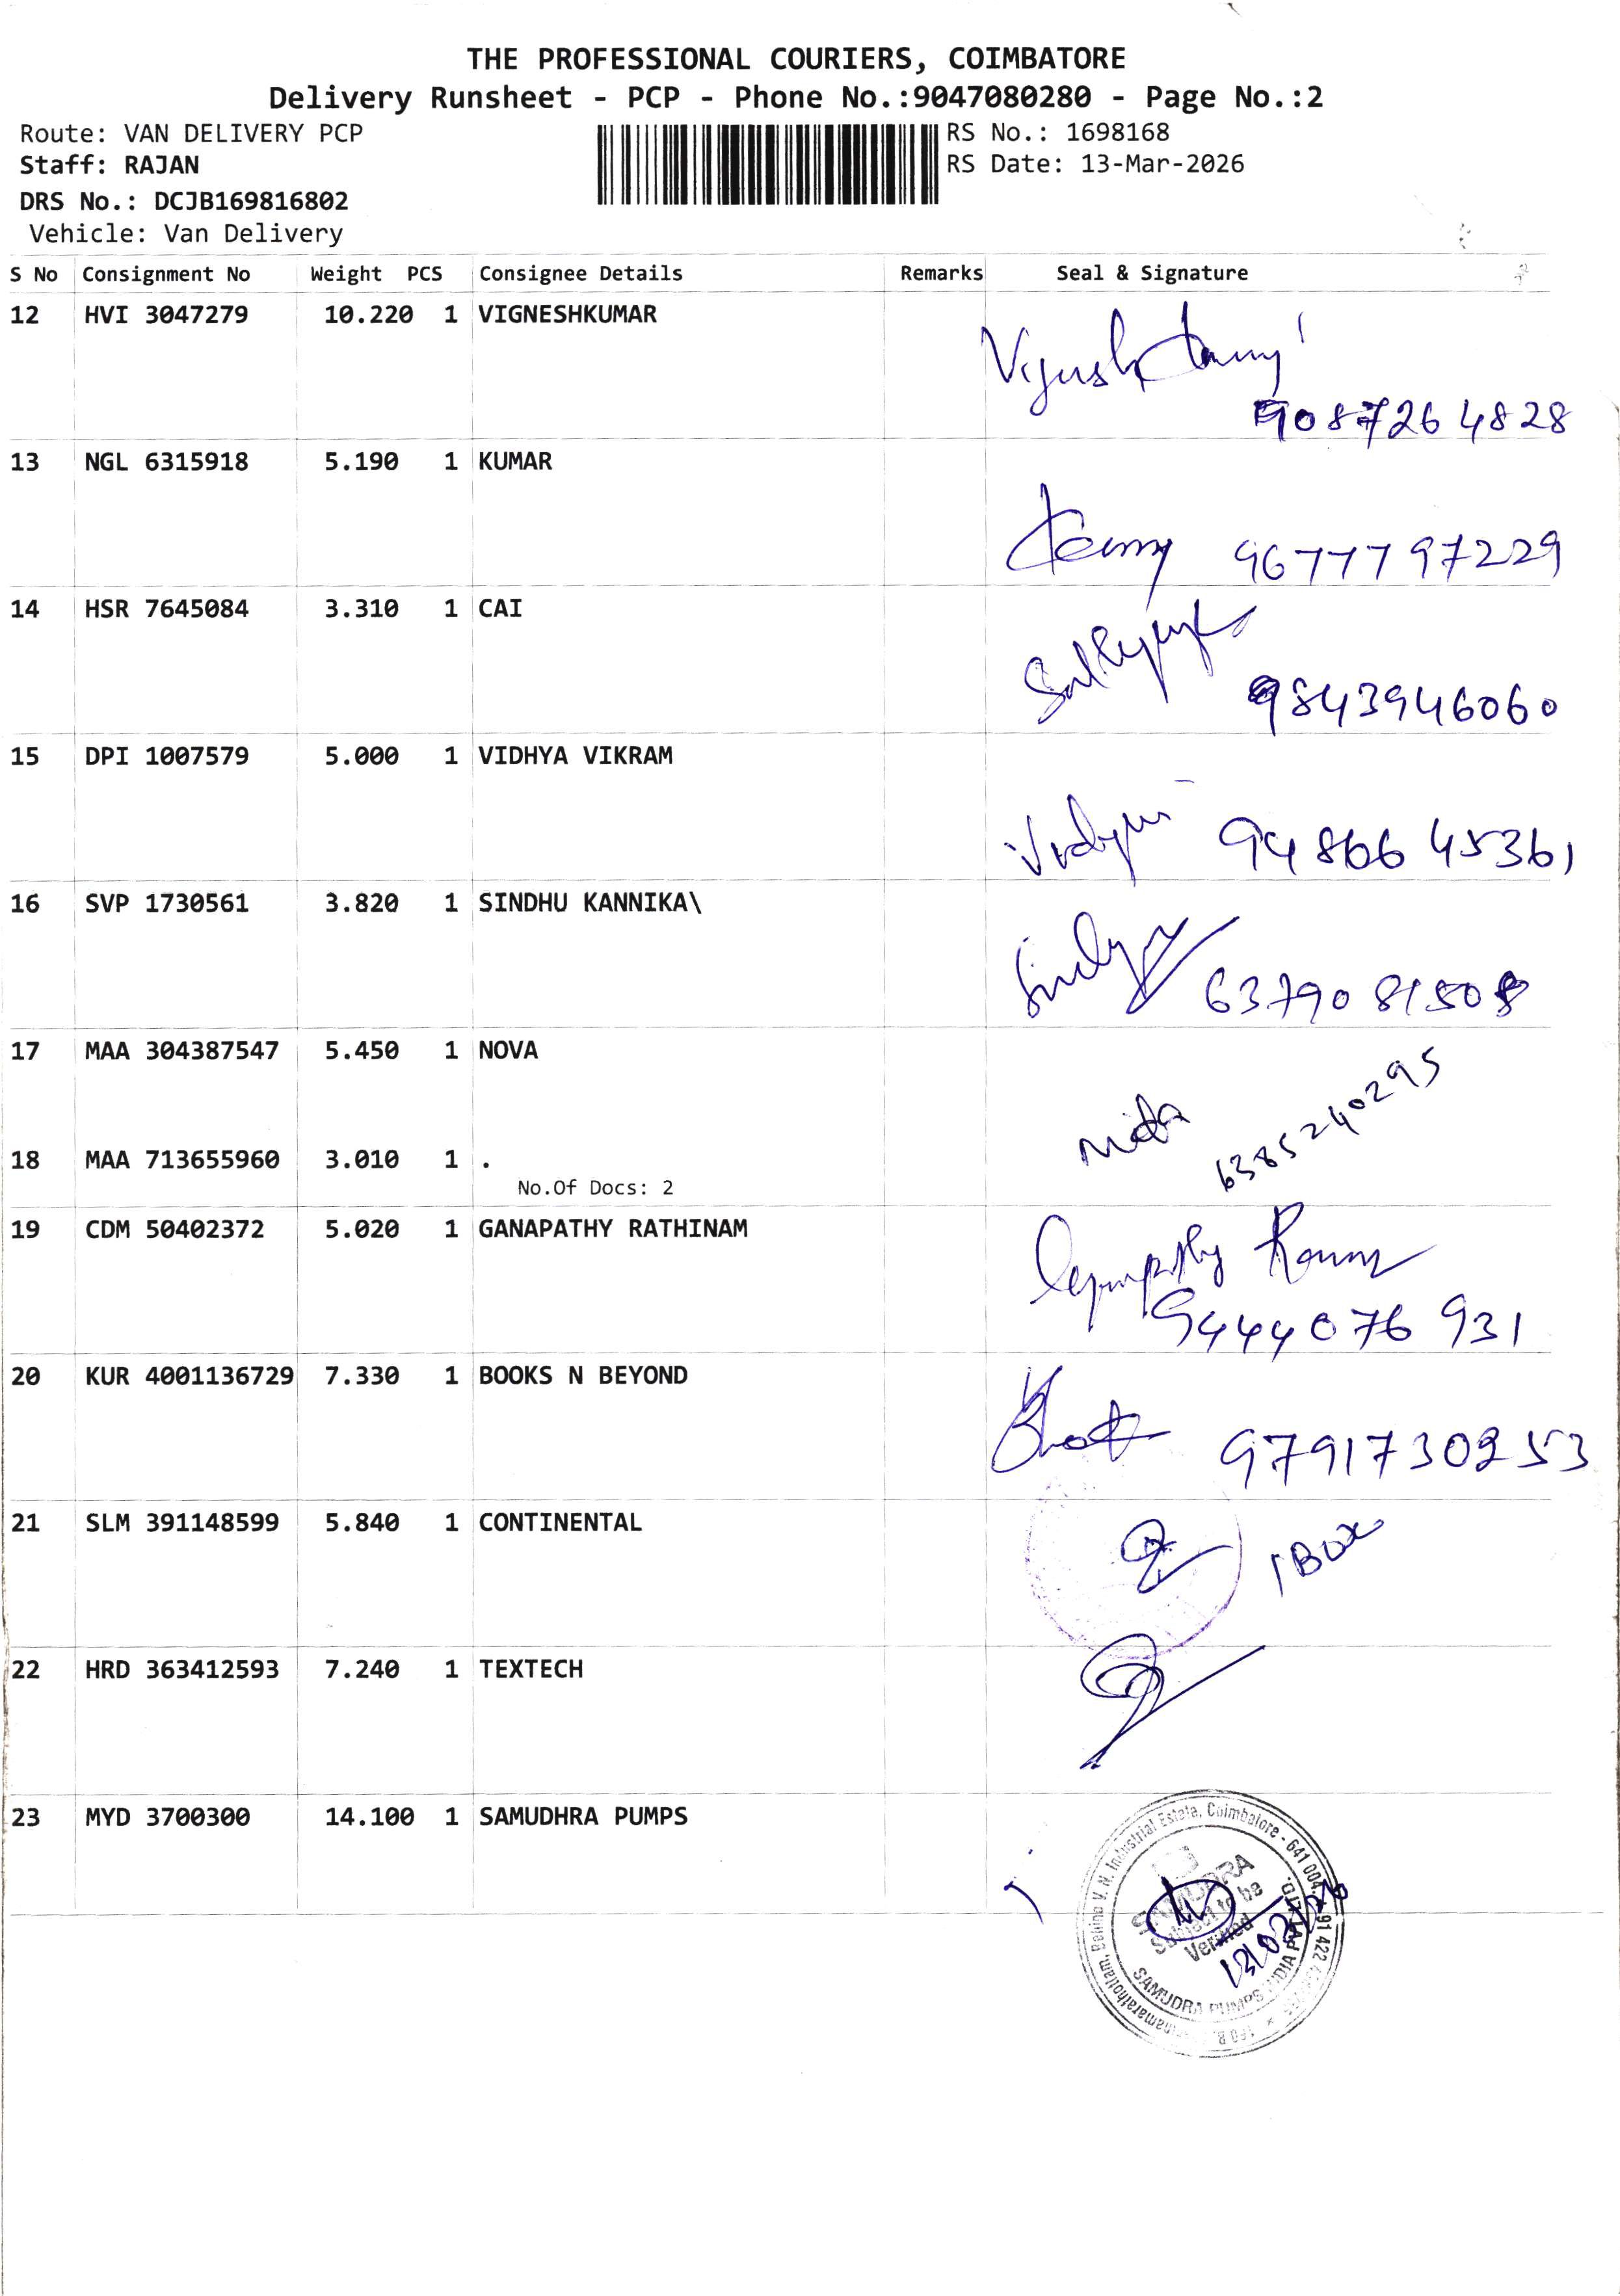 THE PROFESSIONAL COURIERS, COIMBATORE
Delivery Runsheet - PCP - Phone No.:9047080280 - Page No.:2
Route: VAN DELIVERY PCP
RS No.: 1698168
Staff: RAJAN
RS Date: 13-Mar-2026
DRS No.: DCJB169816802
Vehicle: Van Delivery
S No Consignment No Weight PCS Consignee Details Remarks Seal & Signature
12 HVI 3047279 10.220 1 VIGNESHKUMAR
9087264828
13 NGL 6315918 5.190 1 KUMAR
9677797229
14 HSR 7645084 3.310 1 CAI
9843946060
15 DPI 1007579 5.000 1 VIDHYA VIKRAM
9486645361
16 SVP 1730561 3.820 1 SINDHU KANNIKA\
6379081508
17 MAA 304387547 5.450 1 NOVA
6385240295
18 MAA 713655960 3.010 1 .
No.Of Docs: 2
19 CDM 50402372 5.020 1 GANAPATHY RATHINAM
9444076931
20 KUR 4001136729 7.330 1 BOOKS N BEYOND
9791730253
21 SLM 391148599 5.840 1 CONTINENTAL
1 Box
22 HRD 363412593 7.240 1 TEXTECH
23 MYD 3700300 14.100 1 SAMUDHRA PUMPS
V. N. Industrial Estate, Coimbatore - 641 004.
SAMUDRA
Subject to be
Verified
SAMUDRA PUMPS INDIA PVT LTD.